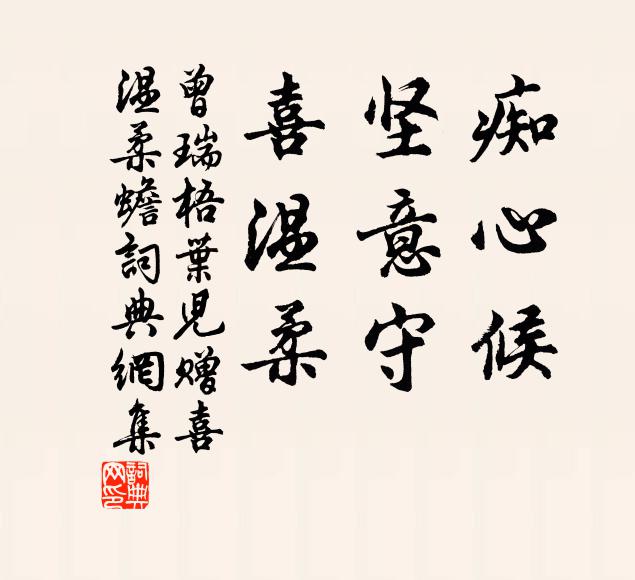 痴心候
坚意守
喜温柔
曾瑞梧葉児贈喜
温柔蟾詞典網集
詞典
网印